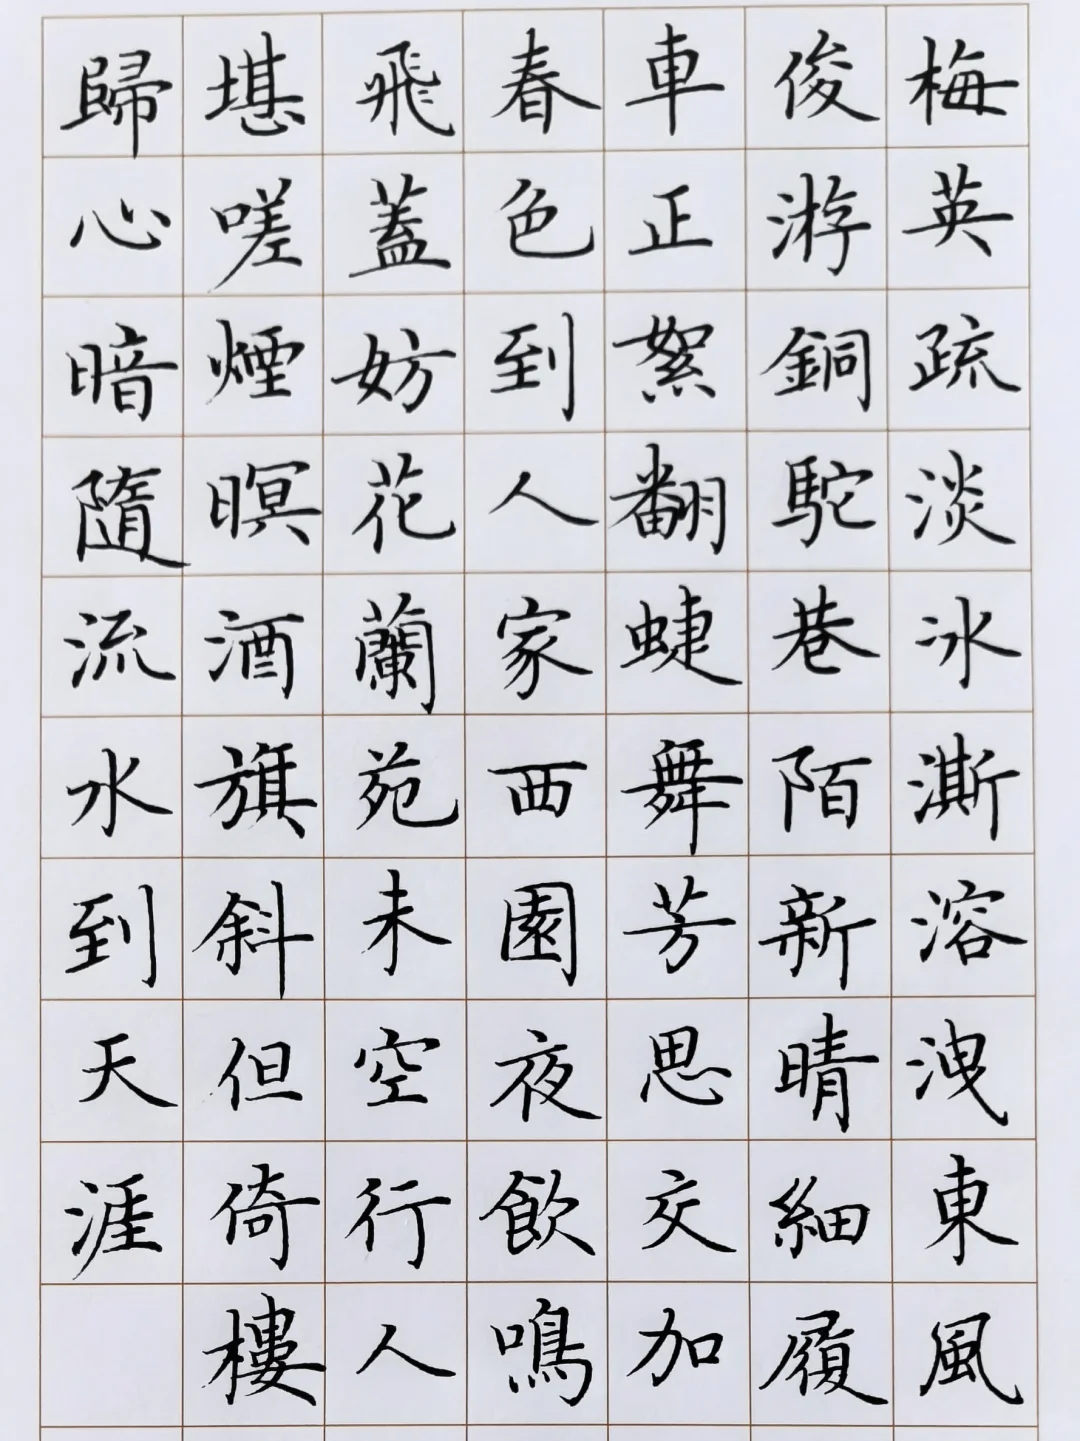 梅英疏淡冰澌溶洩東風
俊游銅駝巷陌新晴細履
車正絮翻蜨舞芳思交加
春色到人家西園夜飲鳴
飛蓋妨花蘭苑未空行人
堪嗟煙暝酒旗斜但倚樓
歸心暗隨流水到天涯